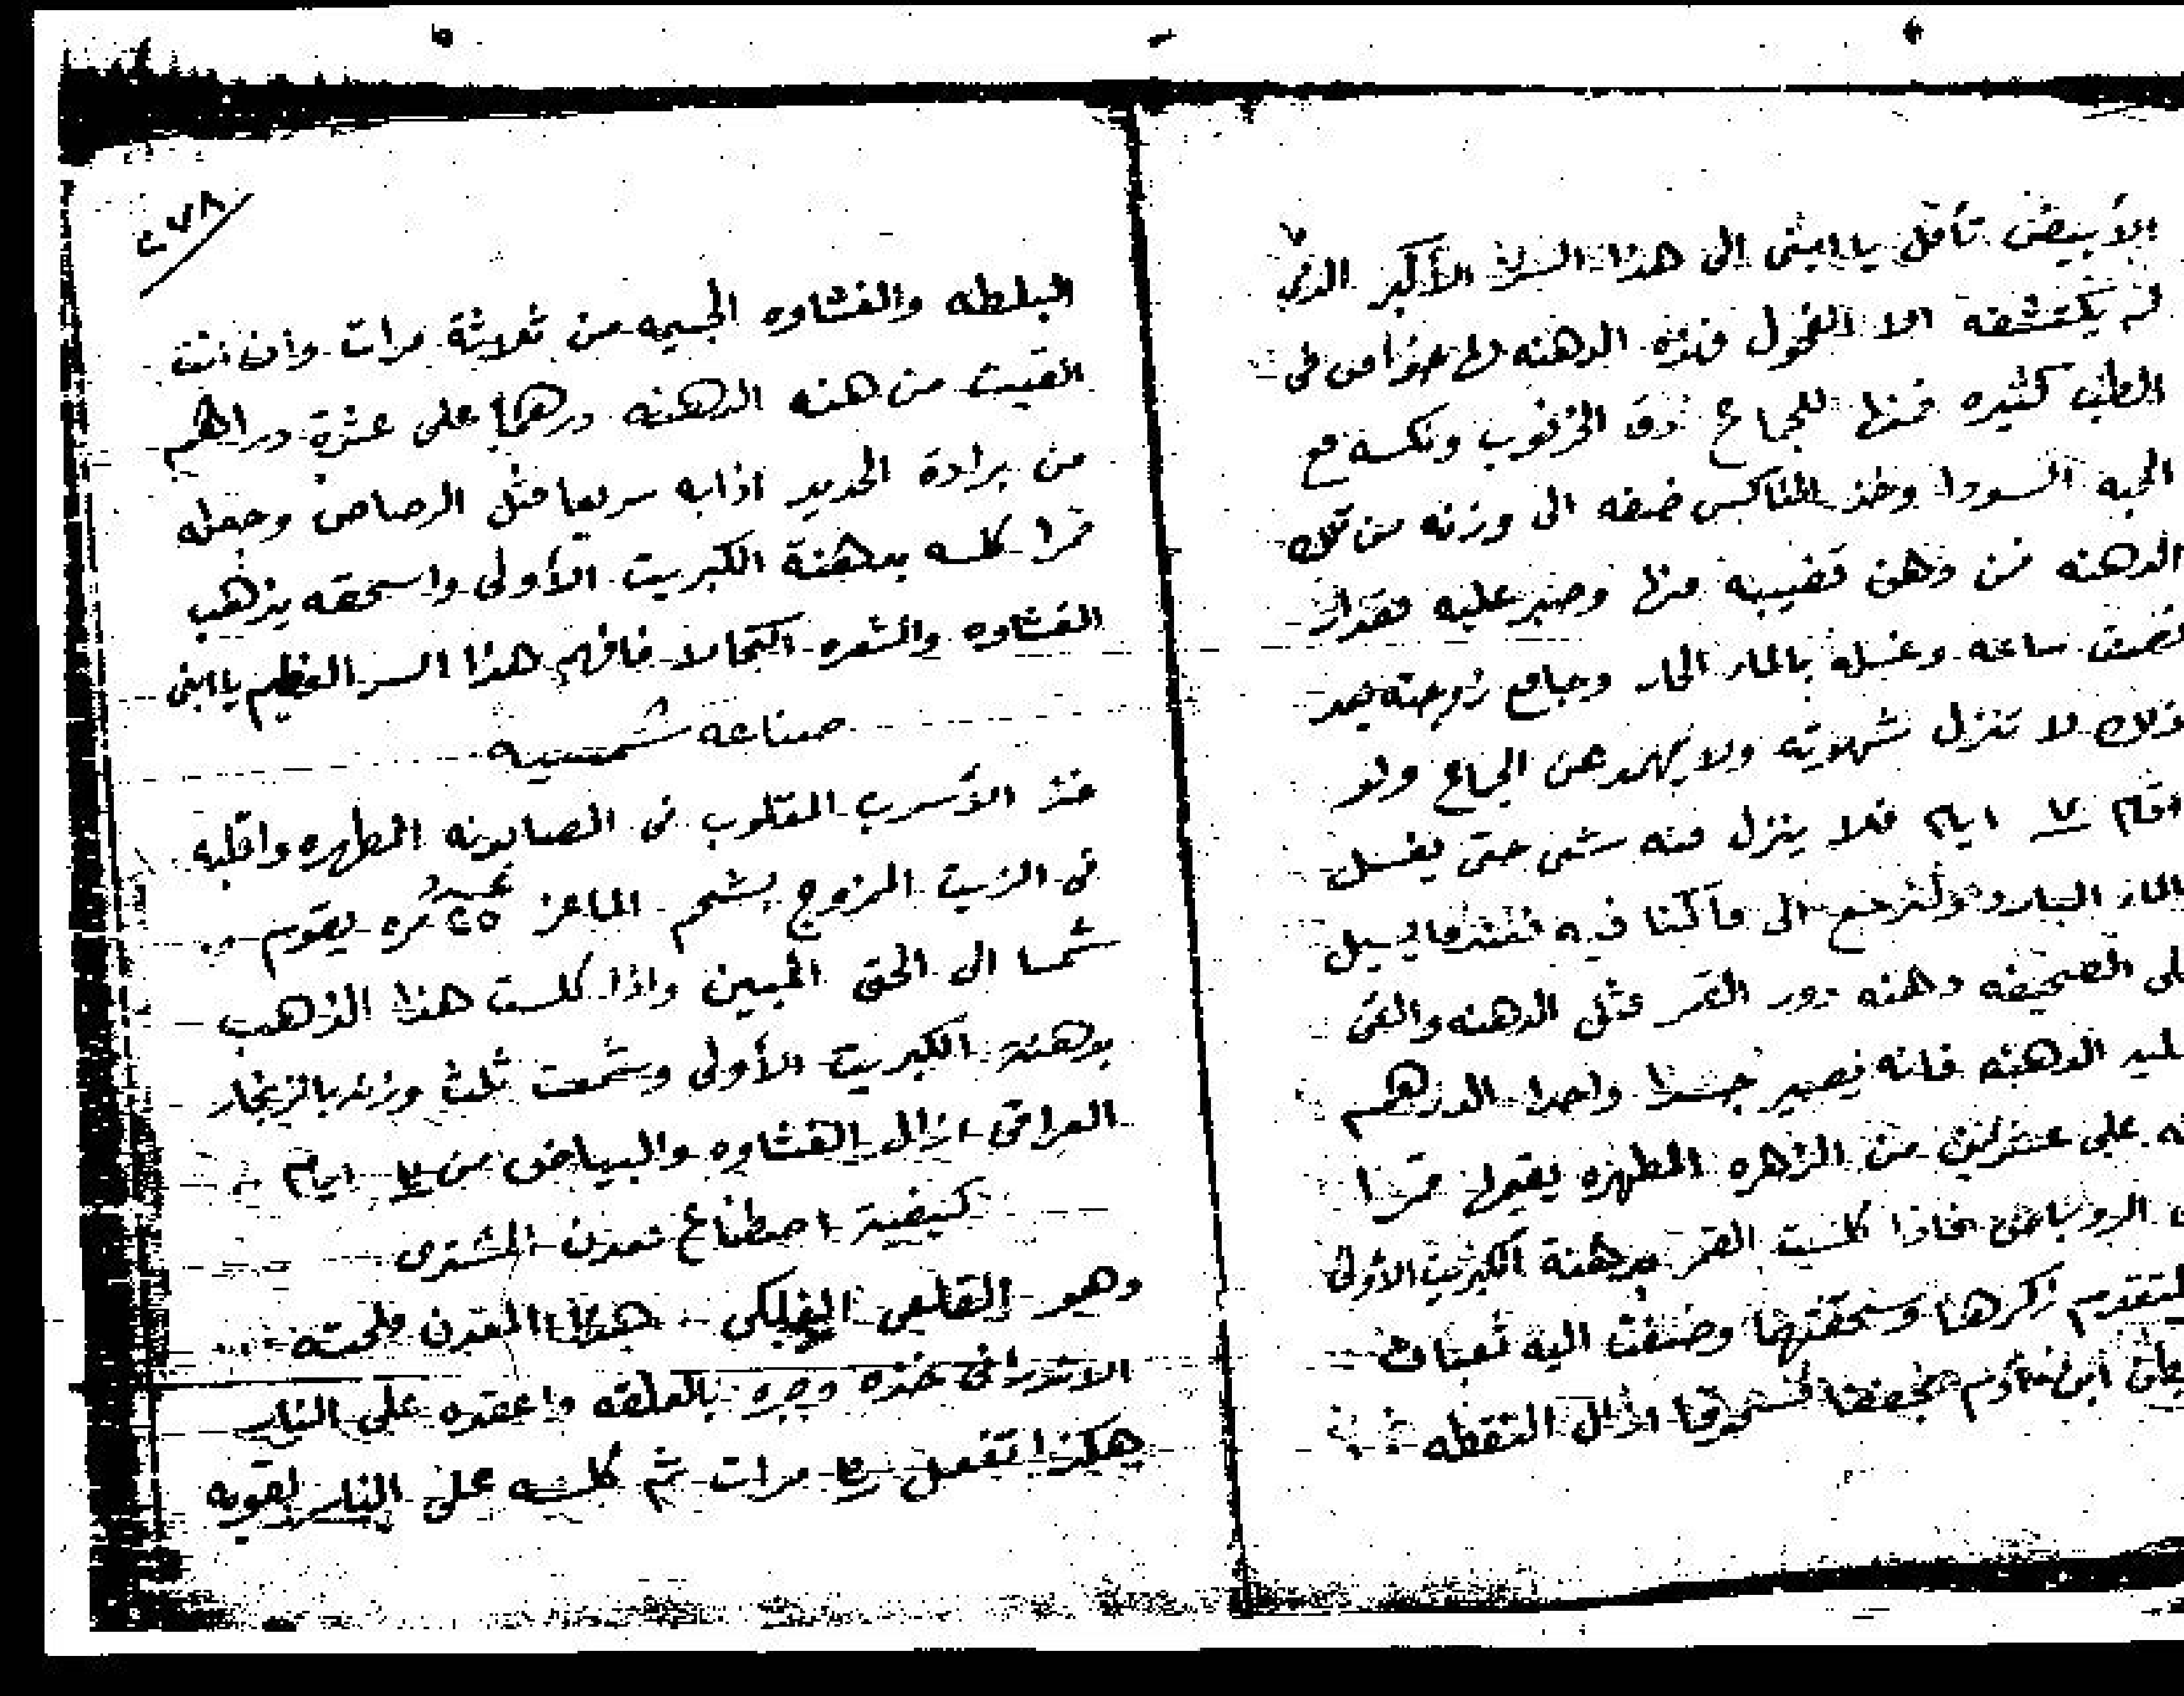 الأبيض تأمل يا ابني الى هذا السر الأكبر الذي
لم يكتشفه الا الفحول فهذه الدهنه لها خواص في
الطب كثيره فمنها للجماع دق الخرنوب وكلسه مع
الحبه السودا وخذ المكلس ضفه الى وزنه من تلك
الدهنه فمن دهن قضيبه منها وصبر عليه مقدار
نصف ساعه وغسله بالماء الحار وجامع زوجته بعد
ذلك لا تنزل شهوته ولا يهمد عن الجماع ولو
اقام ٧ ايام فلا ينزل منه شي حتى يغسل
بالماء البارد ولنرجع الى ما كنا فيه فعندما يسيل
على الصحيفه دهنه دور القمر مثل الدهنه والقي
عليه الدهنه فانه يصير جسدا واحدا الدرهم
منه على عشرين من الزهره المطهره يقيمها قمرا
الروباص فاذا كلست القمر بدهنة الكبريت الأولى
المتقدم ذكرها وسحقتها وضفت اليه
ازال النقطه
٧٨
البلطه والغشاوه الجسيمه من ثلاثة مرات وان انت
القيت من هذه الدهنه درهما على عشرة دراهم
من برادة الحديد اذابه سريعا مثل الرصاص وجعله
قمرا كلسه بدهنة الكبريت الأولى واسحقه يذهب
الغشاوه والشعره اكتحالا فافهم هذا السر العظيم يا ابني
صناعه شمسيه
خذ الأسرب المقلوب في الصابونه المطهره واقلبه
في الزيت المزوج بشحم الماعز ٢٥ مره يقوم
شمسا الى الحق المبين واذا كلست هذا الذهب
بدهنة الكبريت الأولى وشمعت ثلث وزنه بالزنجار
العراقي ازال الغشاوه والبياض من ٣ ايام
كيفية اصطناع معدن المشترى
وهو القلعي الفلكي هذا المعدن ملحته
الاندراني خذه وجره بالعلقه واعقده على النار
هكذا تفعل ٣ مرات ثم كلسه على النار لقويه